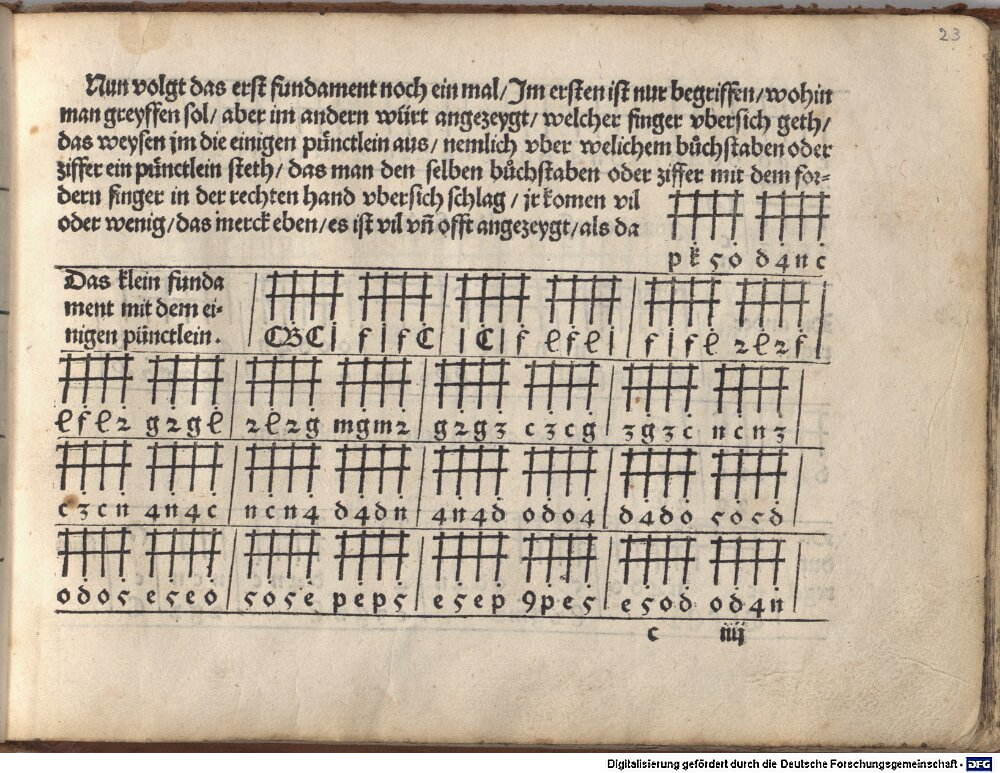 23
Nun volgt das erst fundament noch ein mal/ Im ersten ist nur begriffen/ wohin
man greyffen sol/ aber im andern würt angezeygt/ welcher finger vbersich geth/
das weysen jm die einigen pünctlein aus/ nemlich vber welichem bůchstaben oder
ziffer ein pünctlein steth/ das man den selben bůchstaben oder ziffer mit dem for⸗
dern finger in der rechten hand vbersich schlag/ jr komen vil
oder wenig/ das merck eben/ es ist vil vñ offt angezeygt/ als da
p k 5 o d 4 n c
Das klein funda
ment mit dem ei⸗
nigen pünctlein.
C B C l f l f C l C l f ł f ł l f l f ł 2 ł 2 f
ł f ł 2 g 2 g ł 2 ł 2 g m g m 2 g 2 g 3 c 3 c g 3 g 3 c n c n 3
c 3 c n 4 n 4 c n c n 4 d 4 d n 4 n 4 d o d o 4 d 4 d o 5 o 5 d
o d o 5 e 5 e o 5 o 5 e p e p 5 e 5 e p 9 p e 5 e 5 o d o d 4 n
c iiij
Digitalisierung gefördert durch die Deutsche Forschungsgemeinschaft - DFG